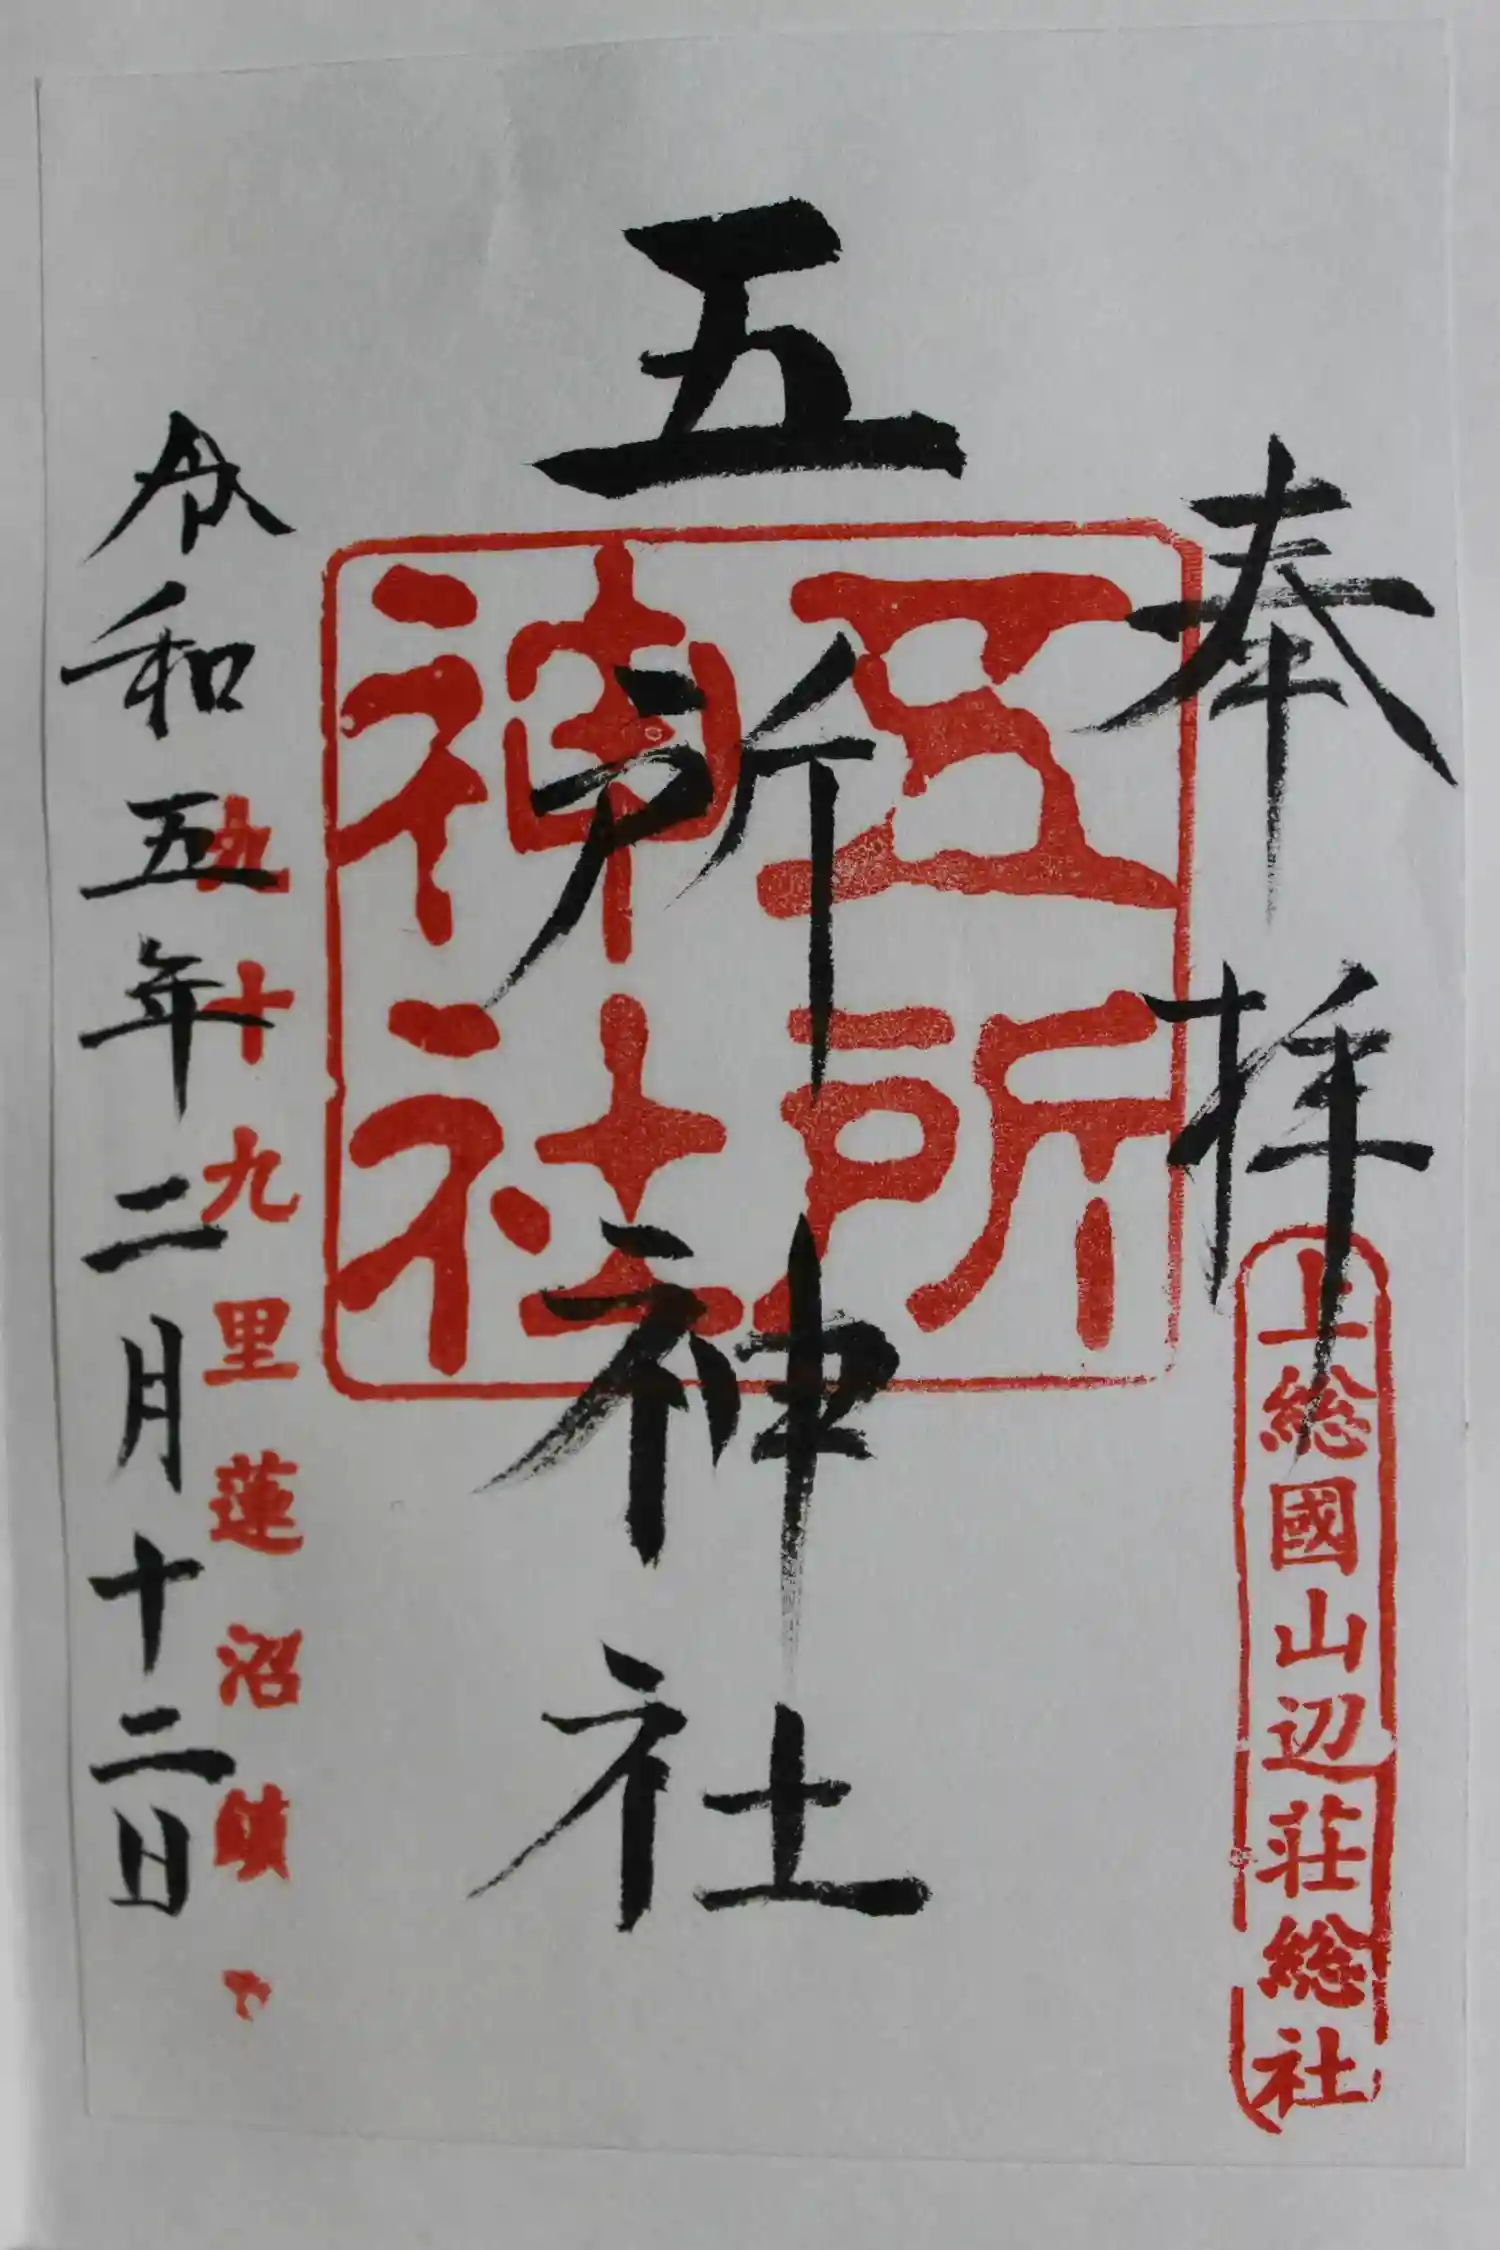 奉拝
上総國山辺荘総社
五所神社
五所
神社
九十九里蓮沼鎮
令和五年二月十二日